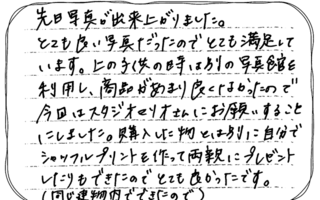 先日写真が出来上がりました。
とても良い写真だったのでとても満足して
います。上の子供の時は別の写真館を
利用し、商品があまり良くなかったので
今回はスタジオマリオさんにお願いすること
にしました。購入した物とは別に自分で
シャッフルプリントを作って両親にプレゼント
したりもできたのでとても良かったです。
(同じ建物内でできたので)